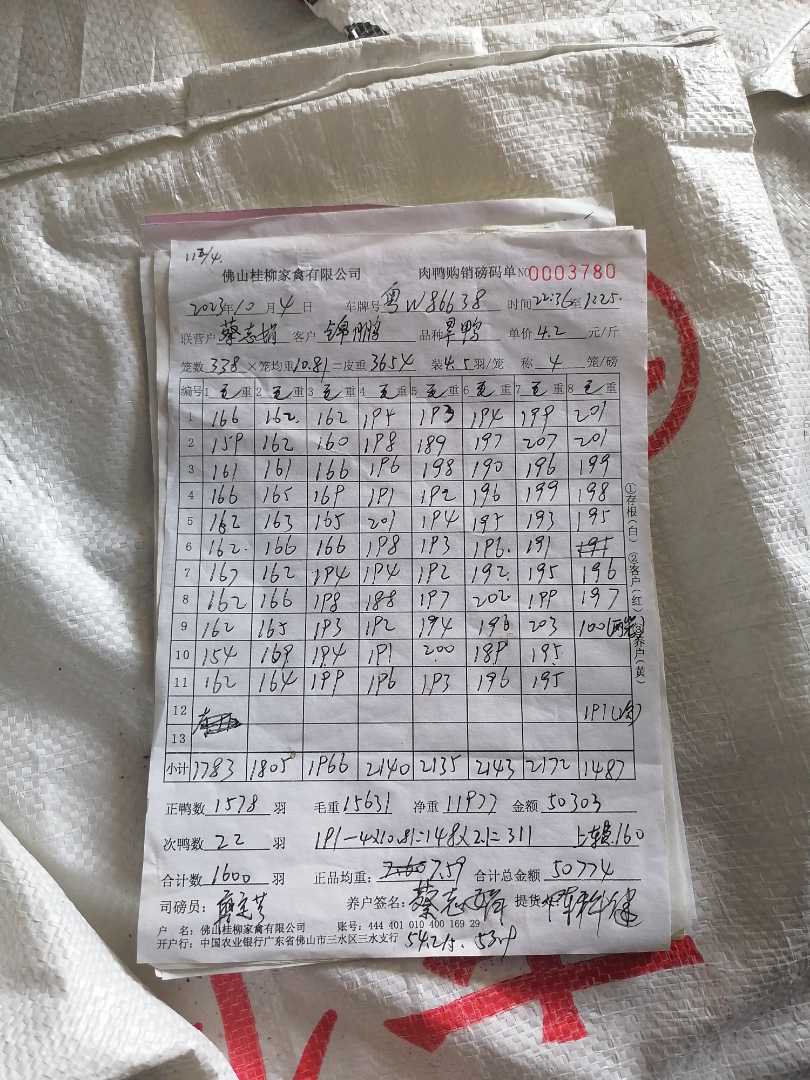 佛山桂柳家禽有限公司 肉鸭购销磅码单 NO 0003780
2023年10月4日 车牌号 粤W86638 时间22:36至1225.
联营户 蔡志娟 客户 锦鹏 品种 旱鸭 单价4.2元/斤
笼数338×笼均重10.81=皮重3654 装4.5羽/笼 称4笼/磅
编号 1毛重 2毛重 3毛重 4毛重 5毛重 6毛重 7毛重 8毛重
1 166 162. 162 194 193 194 199 201
2 159 162 160 198 189 197 207 201
3 161 161 166 196 198 190 196 199
4 166 165 169 191 192 196 199 198
5 162 163 165 201 194 195 193 195
6 162. 166 166 198 193 196. 191
7 167 162 194 194 192 192. 195 196
8 162 166 198 188 197 202 199 197
9 162 165 193 192 194 196 203 100
10 154 169 194 191 200 189 195
11 162 164 199 196 193 196 195
12 191(次)
13
小计 1783 1805 1966 2140 2135 2143 2172 1487
正鸭数1578羽 毛重15631 净重11977 金额50303
次鸭数22羽 191-4×10.81=148×2.1=311 160
合计数1600羽 正品均重:7.59 合计总金额50774
司磅员: 养户签名:蔡志娟 提货
户 名:佛山桂柳家禽有限公司 账号:444 401 010 400 169 29
开户行:中国农业银行广东省佛山市三水区三水支行
①存根(白) ②客户(红) ③养户(黄)